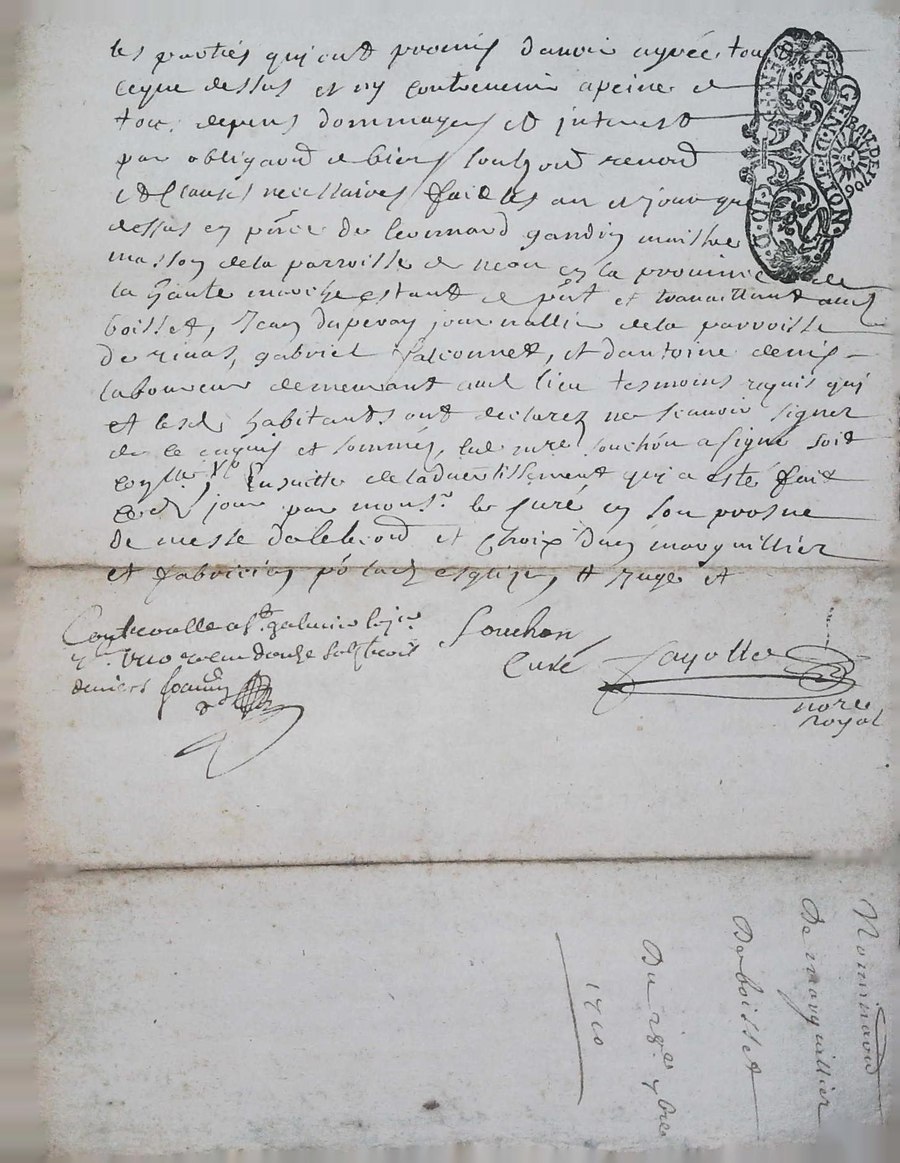 les parties qui ont promis d'avoir agréé tou
ceque dessus et ny contrevenir apeine de
tou: depens dommages et interest
par obligaõn de biens soubz̃on renõn
et clauses necessaires faict les an et jour que
dessus en pñce de Leonnard gandin maistre
masson dela parroisse de en la province de
la haute marche estant de pñt et travaillant aud
boisset, Jean duperay journallie dela parroisse
de rivas, gabriel falconnet, et dantoine denis
laboureur demeurant aud lieu tesmoins requis qui
et lesd habitants ont declarez ne scavoir signer
de ce enquis et sommés, led cure souchon a signe soit
Ensuitte de ladvertissement qui a esté fait
ced jour par monsr le curé en son prosne
de messe et choix dun marguillier
et fabricien pr lad esglize, et
Controolle a St galmier le
douze solz trois
deniers
Souchon
curé
Jayotte
nore
royal
GEN. DE LYON
RAIL DE 1706
Nominaõn
De marguillier
De boisset
Du 18e xbre
1710